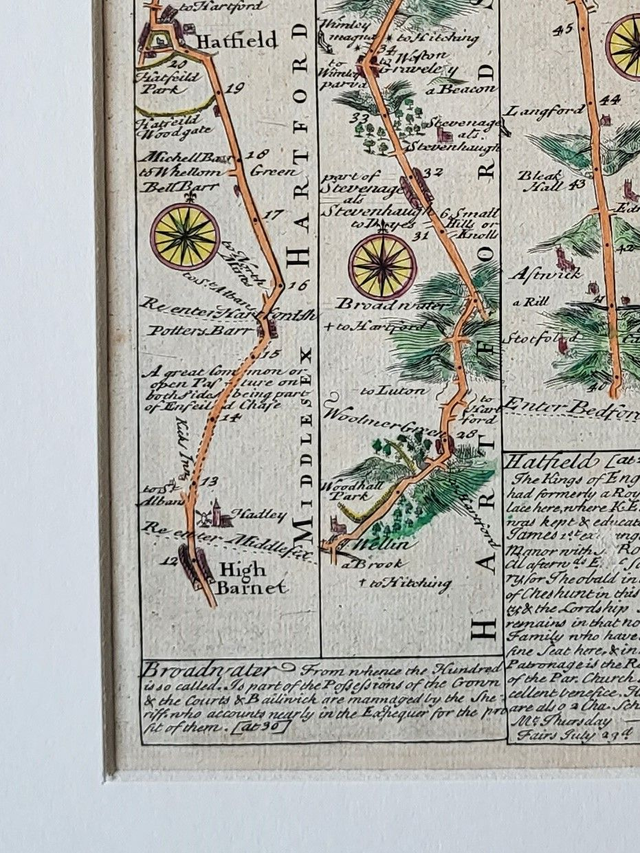 to Hartford
Hatfield
20
Hatfeild
Park
19
Hatfeild
Woodgate
Michell Barr
18
to Whethom
Green
Bell Barr
17
to North
Mims
to St. Albans
16
Re enter Hartfordsh
Potters Barr
15
A great Common or
open Pasture on
both sides being part
of Enfeild Chase
14
Kick Inn
13
to St
Albans
Hadley
Re enter Middlesex
12
High
Barnet
MIDDLESEX
HARTFORD
Wimley
magna
to Hitching
34
to Waston
to
Wimley
parva
Graveley
a Beacon
33
Stevenage
als.
Stevenhaugh
32
part of
Stevenage
als
Stevenhaugh
6 Small
Hills or
Knolls
31
Broadwater
to Hartford
to Luton
to
Hart
ford
Woolmer Green
26
Woodhall
Park
Hartford
Wellin
a Brook
to Hitching
HARTFORD
45
44
Langford
Bleak
Hall
43
42
Astwick
a Rill
41
Stotfold
40
Enter Bedford
Broadwater From whence the Hundred
is so called. Is part of the Possessions of the Crown
& the Courts & Bailiwick are mannaged by the She-
riff who accounts nearly in the Exhequer for the pro
fit of them. [at 30]
Hatfield [at
The Kings of Eng
had formerly a Roy
lace here, where K.E
was kept & educa
James 1st
manor with
ry for Theobald in
of Cheshunt in this
& the Lordship
remains in that no
Family who have
fine Seat here, & in
Patronage is the R
of the Par. Church
cellent benefice. T
are also 2 Cha. Sch
Mt. Thursday
Fairs July 23d